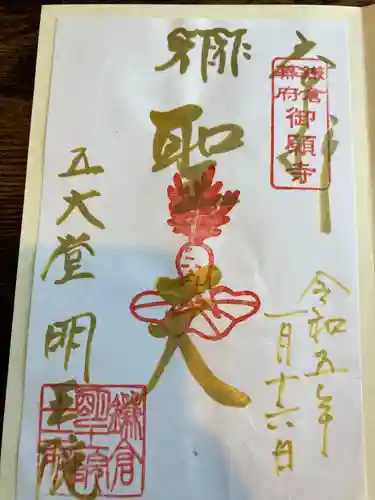 奉拝
鎌倉
幕府
御願寺
令和五年
一月十六日
聖天
五大堂 明王院
鎌倉
明王院